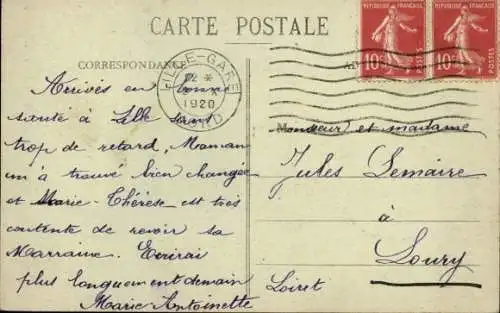 CARTE POSTALE
CORRESPONDANCE
LILLE-GARE
12 *
1920
NORD
RÉPUBLIQUE FRANÇAISE
10c POSTES
10c POSTES
Arrivés en bonne
santé à Lille sans
trop de retard, Maman
m'a trouvé bien changée
et Marie-Thérèse est très
contente de revoir sa
Marraine. Ecrirai
plus longuement demain
Marie Antoinette
Monsieur et madame
Jules Lemaire
à
Loury
Loiret